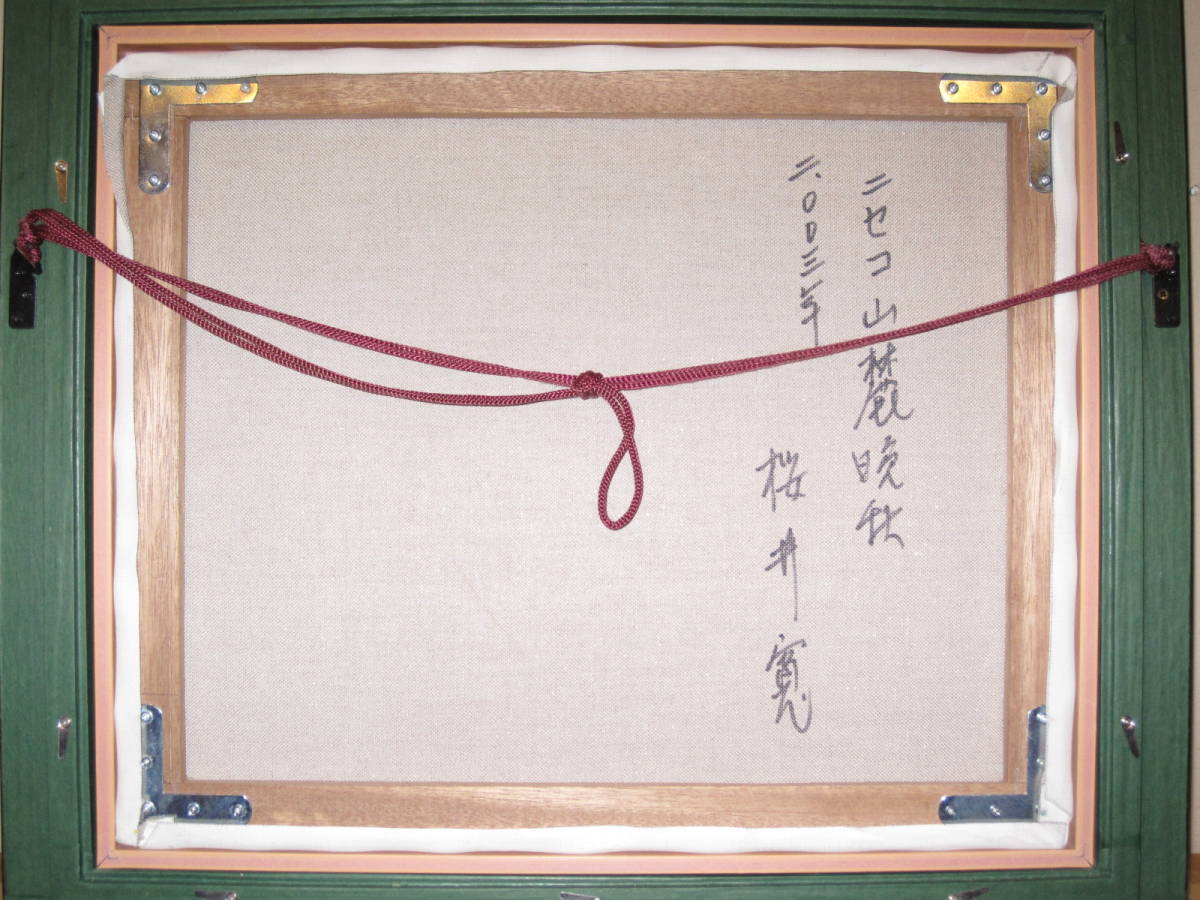 ニセコ山麓晩秋
二〇〇三年
桜井寛